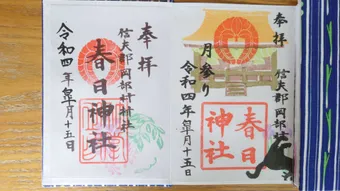 奉拝
月参り
春日神社
令和四年皐月十五日
奉拝
信夫郡岡部村鎮社
春日神社
令和四年皐月十五日